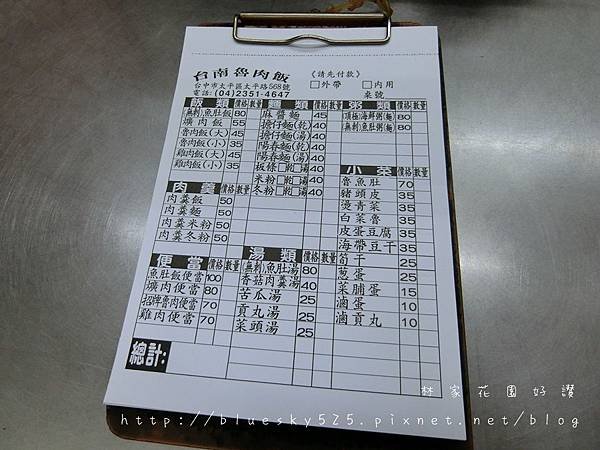 台南魯肉飯
台中市太平區太平路568號
電話:(04)2351-4647
《請先付款》
□外帶 □內用
桌號
飯類 價格 數量
(無刺)魚肚飯 80
爌肉飯 55
魯肉飯(大) 45
魯肉飯(小) 35
雞肉飯(大) 45
雞肉飯(小) 35
肉羹 價格 數量
肉羹飯 50
肉羹麵 50
肉羹米粉 50
肉羹冬粉 50
便當 價格 數量
魚肚飯便當 100
爌肉便當 80
招牌魯肉便當 70
雞肉便當 70
麵類 價格 數量
麻醬麵 45
擔仔麵(乾) 40
擔仔麵(湯) 40
陽春麵(乾) 40
陽春麵(湯) 40
板條□乾□湯 40
米粉□乾□湯 40
冬粉□乾□湯 40
湯類 價格 數量
(無刺)魚肚湯 80
香菇肉羹湯 40
苦瓜湯 25
貢丸湯 25
菜頭湯 25
粥類 價格 數量
頂極海鮮粥(麵) 80
(無刺)魚肚粥(麵) 80
小菜 價格 數量
魯魚肚 70
豬頭皮 35
燙青菜 35
白菜魯 35
皮蛋豆腐 35
海帶豆干 35
筍干 25
蔥蛋 25
菜脯蛋 15
滷蛋 10
滷貢丸 10
總計:
林家花園好讚
http://bluesky525.pixnet.net/blog